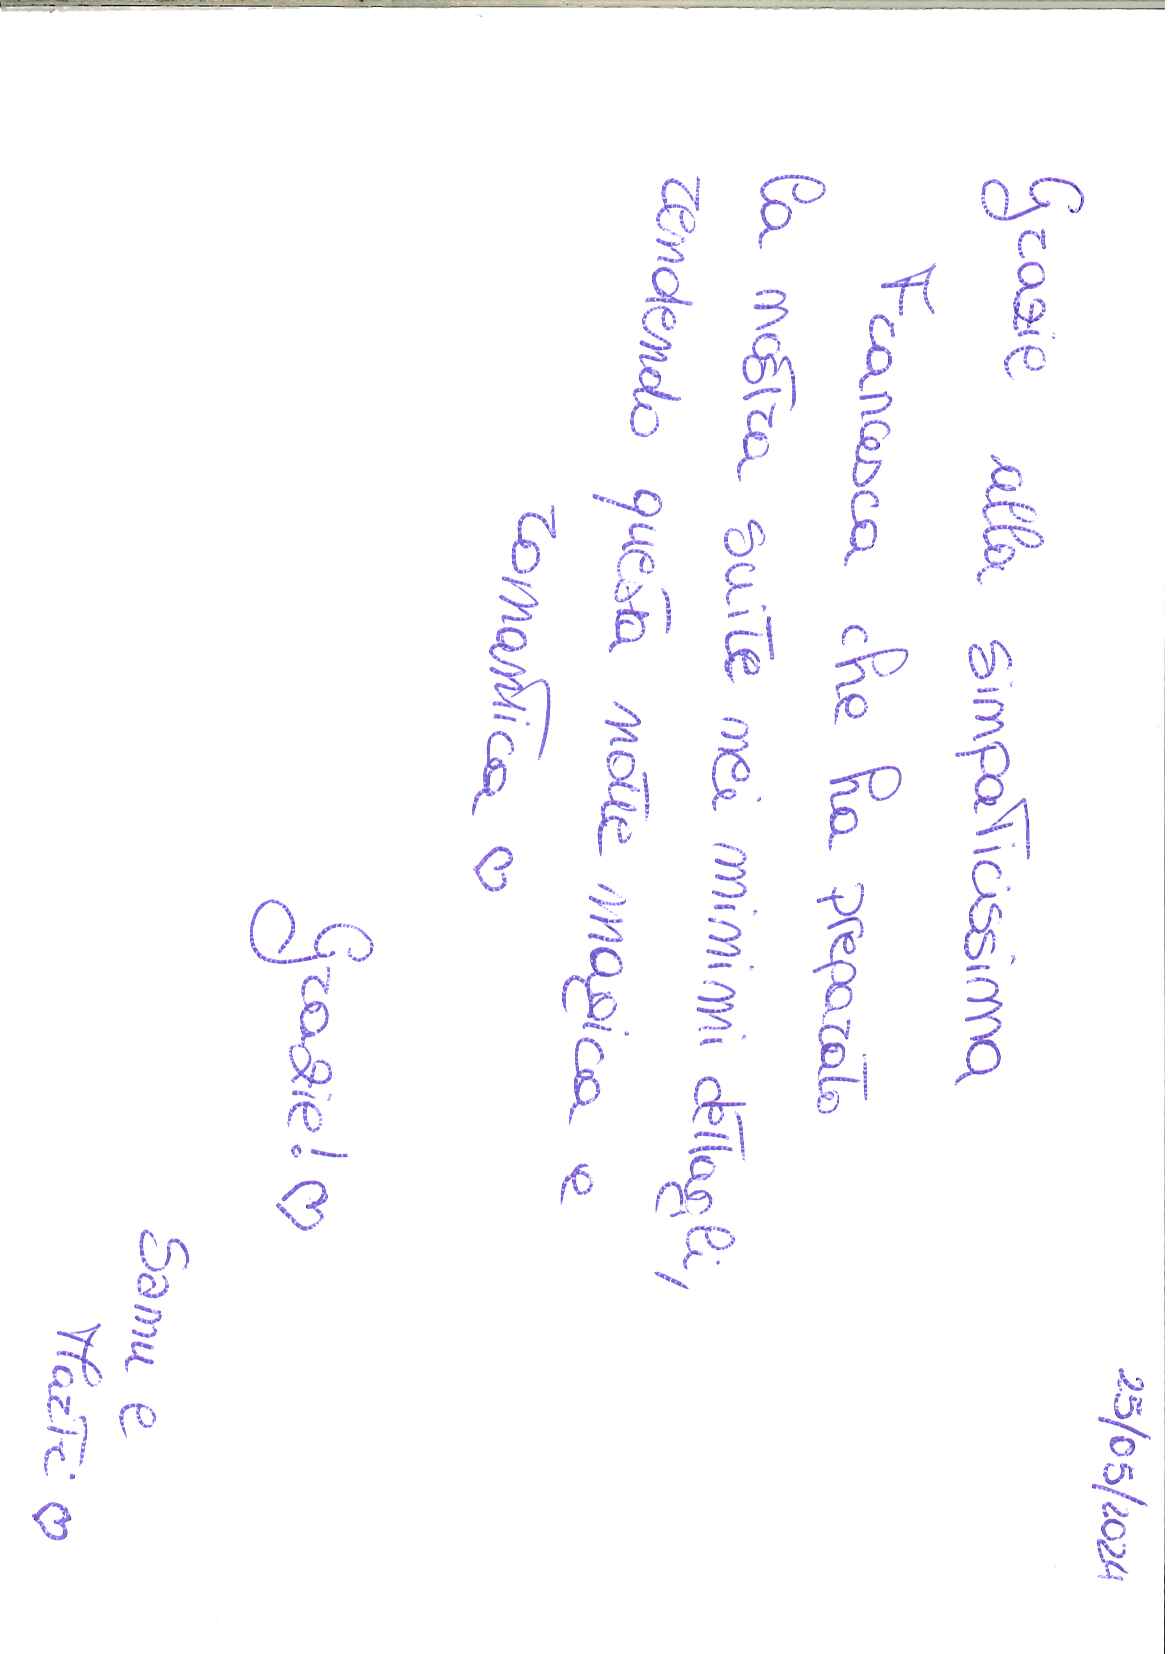 25/05/2024
Grazie alla simpaticissima
Francesca che ha preparato
la nostra suite nei minimi dettagli,
rendendo questa notte magica e
romantica ♡
Grazie! ♡
Samu e
Marti ♡